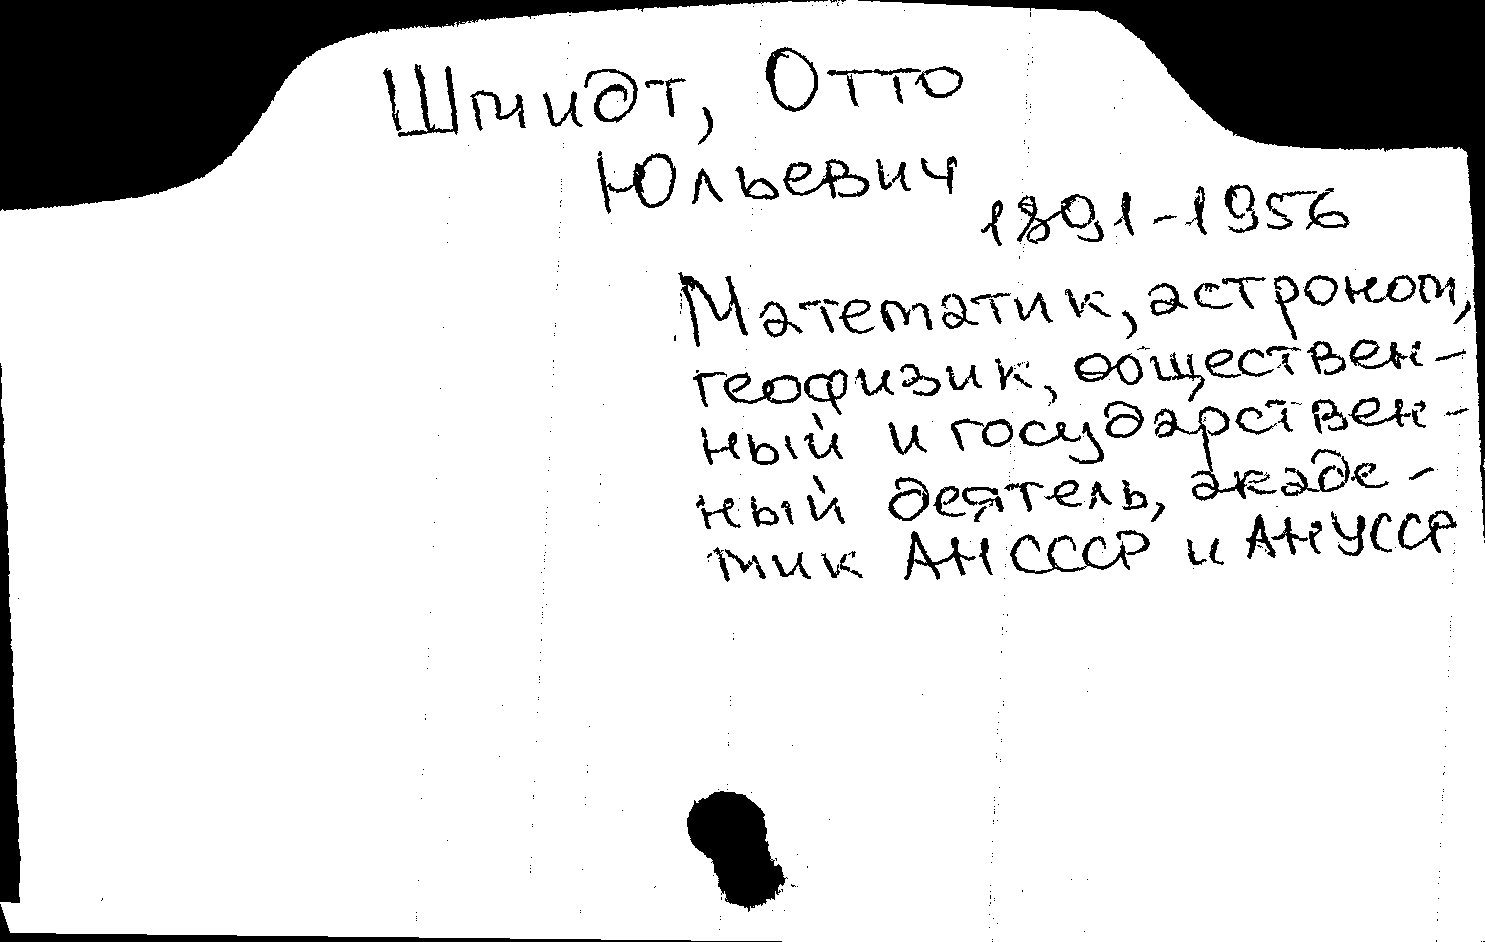 Шмидт, Отто
Юльевич
1891-1956
Математик, астроном,
геофизик, обществен-
ный и государствен-
ный деятель, акаде-
мик АН СССР и АН УССР